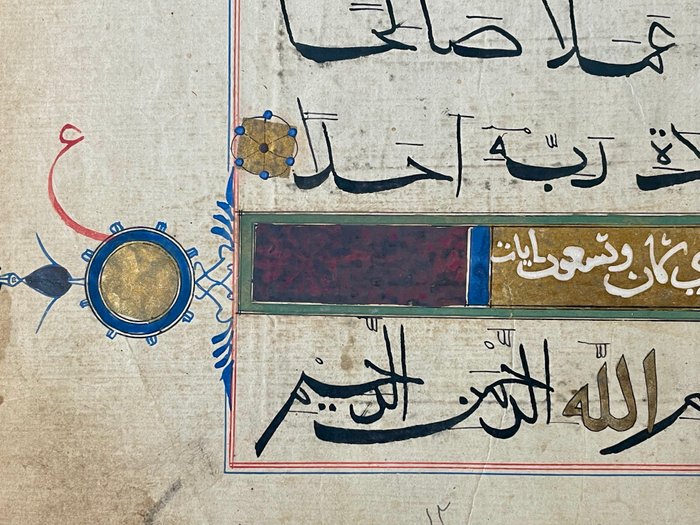 عَمَلًا صَالِحًا
رَبِّهٖٓ اَحَدًا
ع
ثمان وتسعون ايات
الله الرحمن الرحيم
١٢